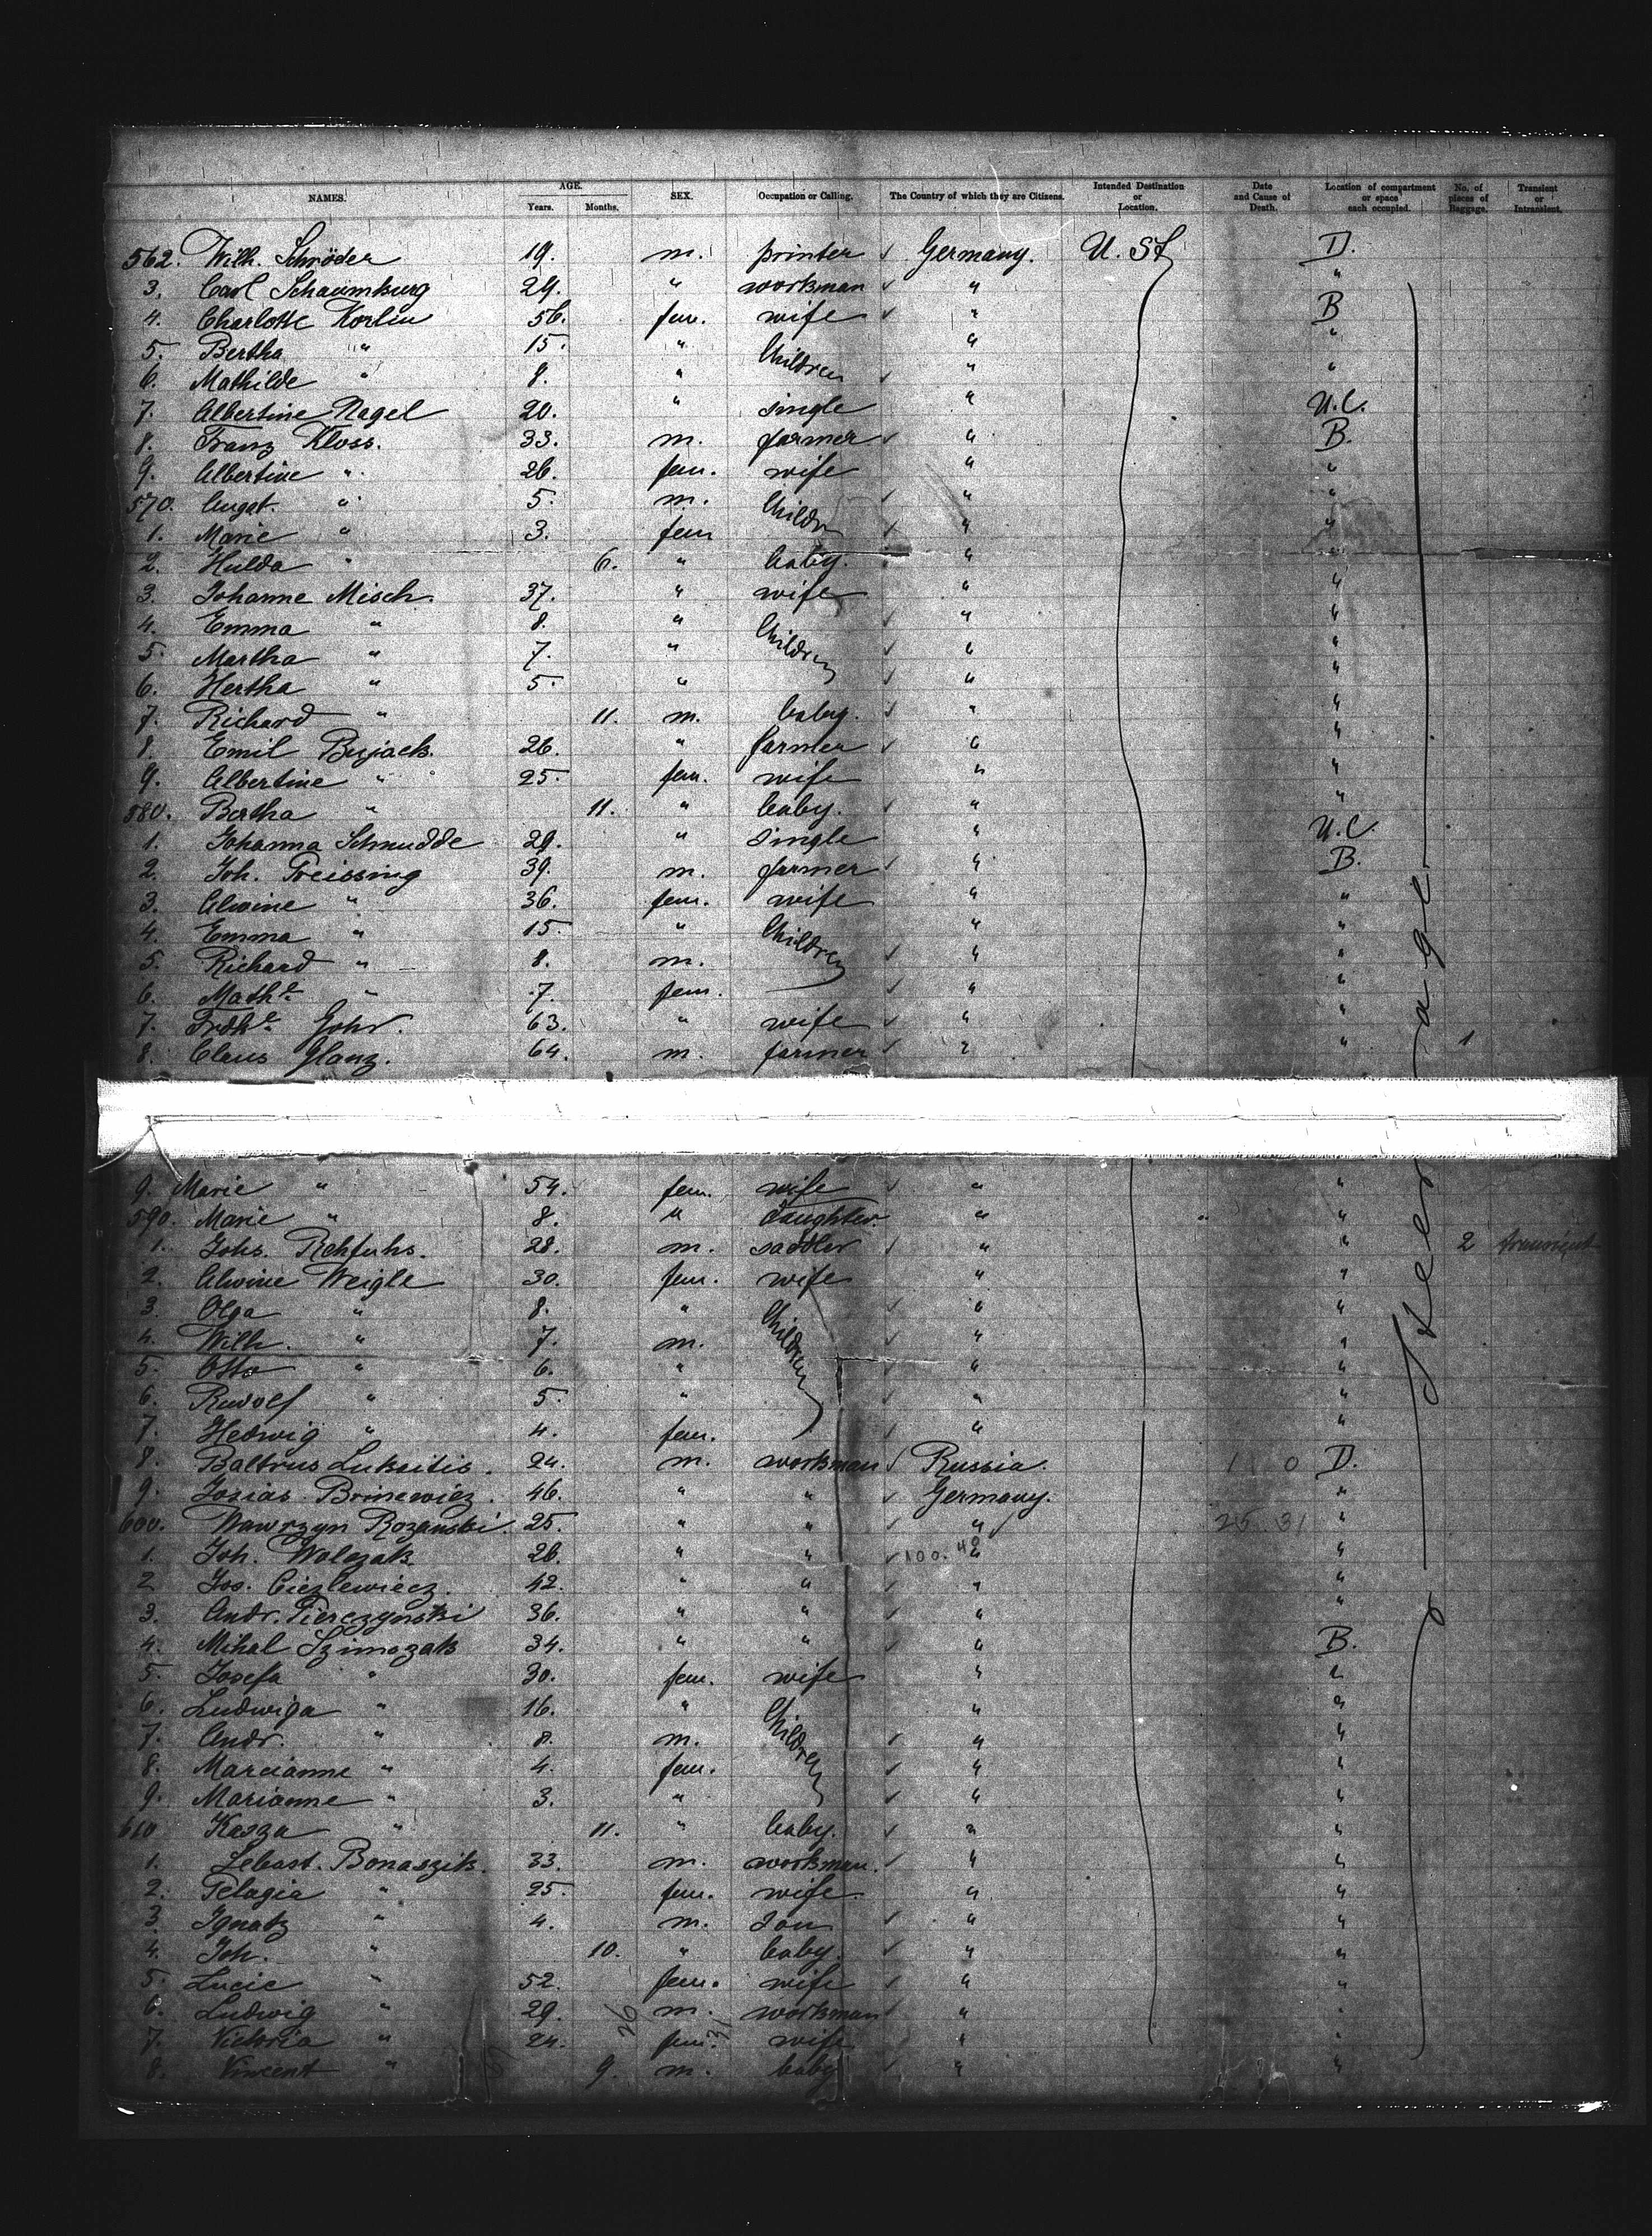 NAMES. AGE. Years. Months. SEX. Occupation or Calling. The Country of which they are Citizens. Intended Destination or Location. Date and Cause of Death. Location of compartment or space each occupied. No. of pieces of Baggage. Transient or Intransient.
562. Wilh. Schröder 19. m. printer ✓ Germany. U. St. D.
3. Carl Schaumburg 29. " workman ✓ " "
4. Charlotte Korlin 56. fem. wife ✓ " B
5. Bertha " 15. " Children " "
6. Mathilde " 8. " ✓ " "
7. Albertine Nagel 20. " single " U.C.
8. Franz Kloss. 33. m. farmer ✓ " B.
9. Albertine " 26. fem. wife " "
570. Augst. " 5. m. Childr ✓ " "
1. Marie " 3. fem ✓ " "
2. Hulda " 6. " baby. " "
3. Johanne Misch. 37. " wife " "
4. Emma " 8. " Children ✓ " "
5. Martha " 7. " ✓ " "
6. Hertha " 5. " ✓ " "
7. Richard " 11. m. baby. ✓ " "
8. Emil Bujack. 26. " farmer ✓ " "
9. Albertine " 25. fem. wife " "
580. Bertha " 11. " baby. ✓ " "
1. Johanna Schmudde 29. " Single " U.C.
2. Joh. Treissing 39. m. farmer ✓ " B.
3. Alwine " 36. fem. wife " "
4. Emma " 15. " Children " "
5. Richard " 8. m. ✓ " "
6. Mathe. " 7. fem. ✓ " "
7. Frdke. Gohr. 63. " wife ✓ " "
8. Claus Glanz. 64. m. farmer ✓ " " 1
9. Marie " 54. fem. wife ✓ " "
590. Marie " 8. " daughter. " "
1. Johs. Rehfuhs. 28. m. saddler ✓ " " 2 transient
2. Alwine Weigle 30. fem. wife " "
3. Olga " 8. " Children ✓ " "
4. Wilh. " 7. m. ✓ " "
5. Otto " 6. " ✓ " "
6. Rudolf " 5. " ✓ " "
7. Hedwig " 4. fem. ✓ " "
8. Baltrus Luksitis. 24. m. workman ✓ Russia. 1 0 D.
9. Josias Brinewicz. 46. " " ✓ Germany. "
600. Wawrzyn Rozanski. 25. " " ✓ " 25 31 "
1. Joh. Wolczak. 26. " " ✓ 100.40 " "
2 Jos. Ciezlewiecz. 42. " " ✓ " "
3. Andr. Pierczynski 36. " " ✓ " "
4. Mihal Szimczak 34. " " ✓ " B.
5. Josefa " 30. fem. wife " "
6. Ludwiga " 16. " Children " "
7. Andr. " 8. m. ✓ " "
8. Marcianne " 4. fem. ✓ " "
9. Marianne " 3. " ✓ " "
610 Kasza " 11. " baby. ✓ " "
1. Sebast. Bonaszik. 33. m. workman. ✓ " "
2. Pelagia " 25. fem. wife. " "
3. Ignatz " 4. m. Son ✓ " "
4. Joh. " 10. " baby. ✓ " "
5. Lucie " 52. fem. wife ✓ " "
6. Ludwig " 29. 26 m. 31 workman ✓ " "
7. Victoria " 24. fem. wife " "
8. Vincent " 9. m. baby ✓ " "
Steerage